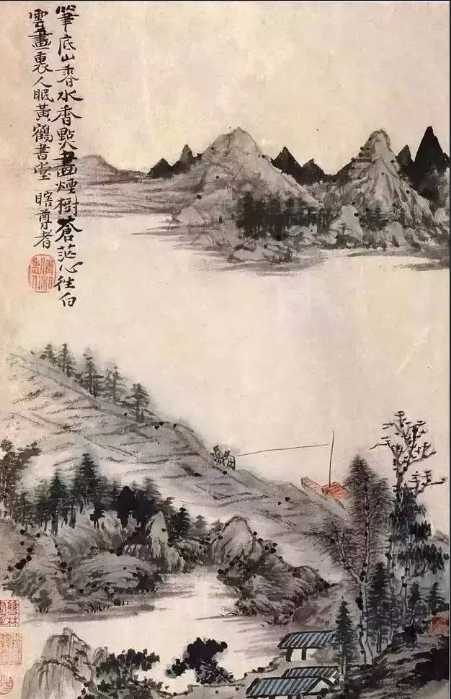 筆底山香水香點畫煙樹蒼茫心往白
雲畫裏人眠黃鶴書堂 瞎尊者